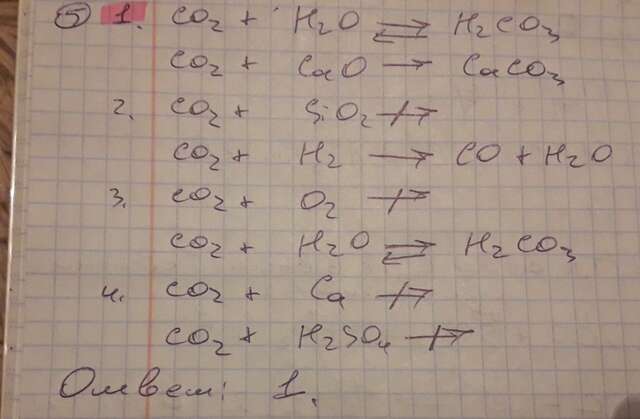 ⑤ 1. CO₂ + H₂O ⇄ H₂CO₃
CO₂ + CaO → CaCO₃
2. CO₂ + SiO₂ ↛
CO₂ + H₂ → CO + H₂O
3. CO₂ + O₂ ↛
CO₂ + H₂O ⇄ H₂CO₃
4. CO₂ + Ca ↛
CO₂ + H₂SO₄ ↛
Ответ: 1.